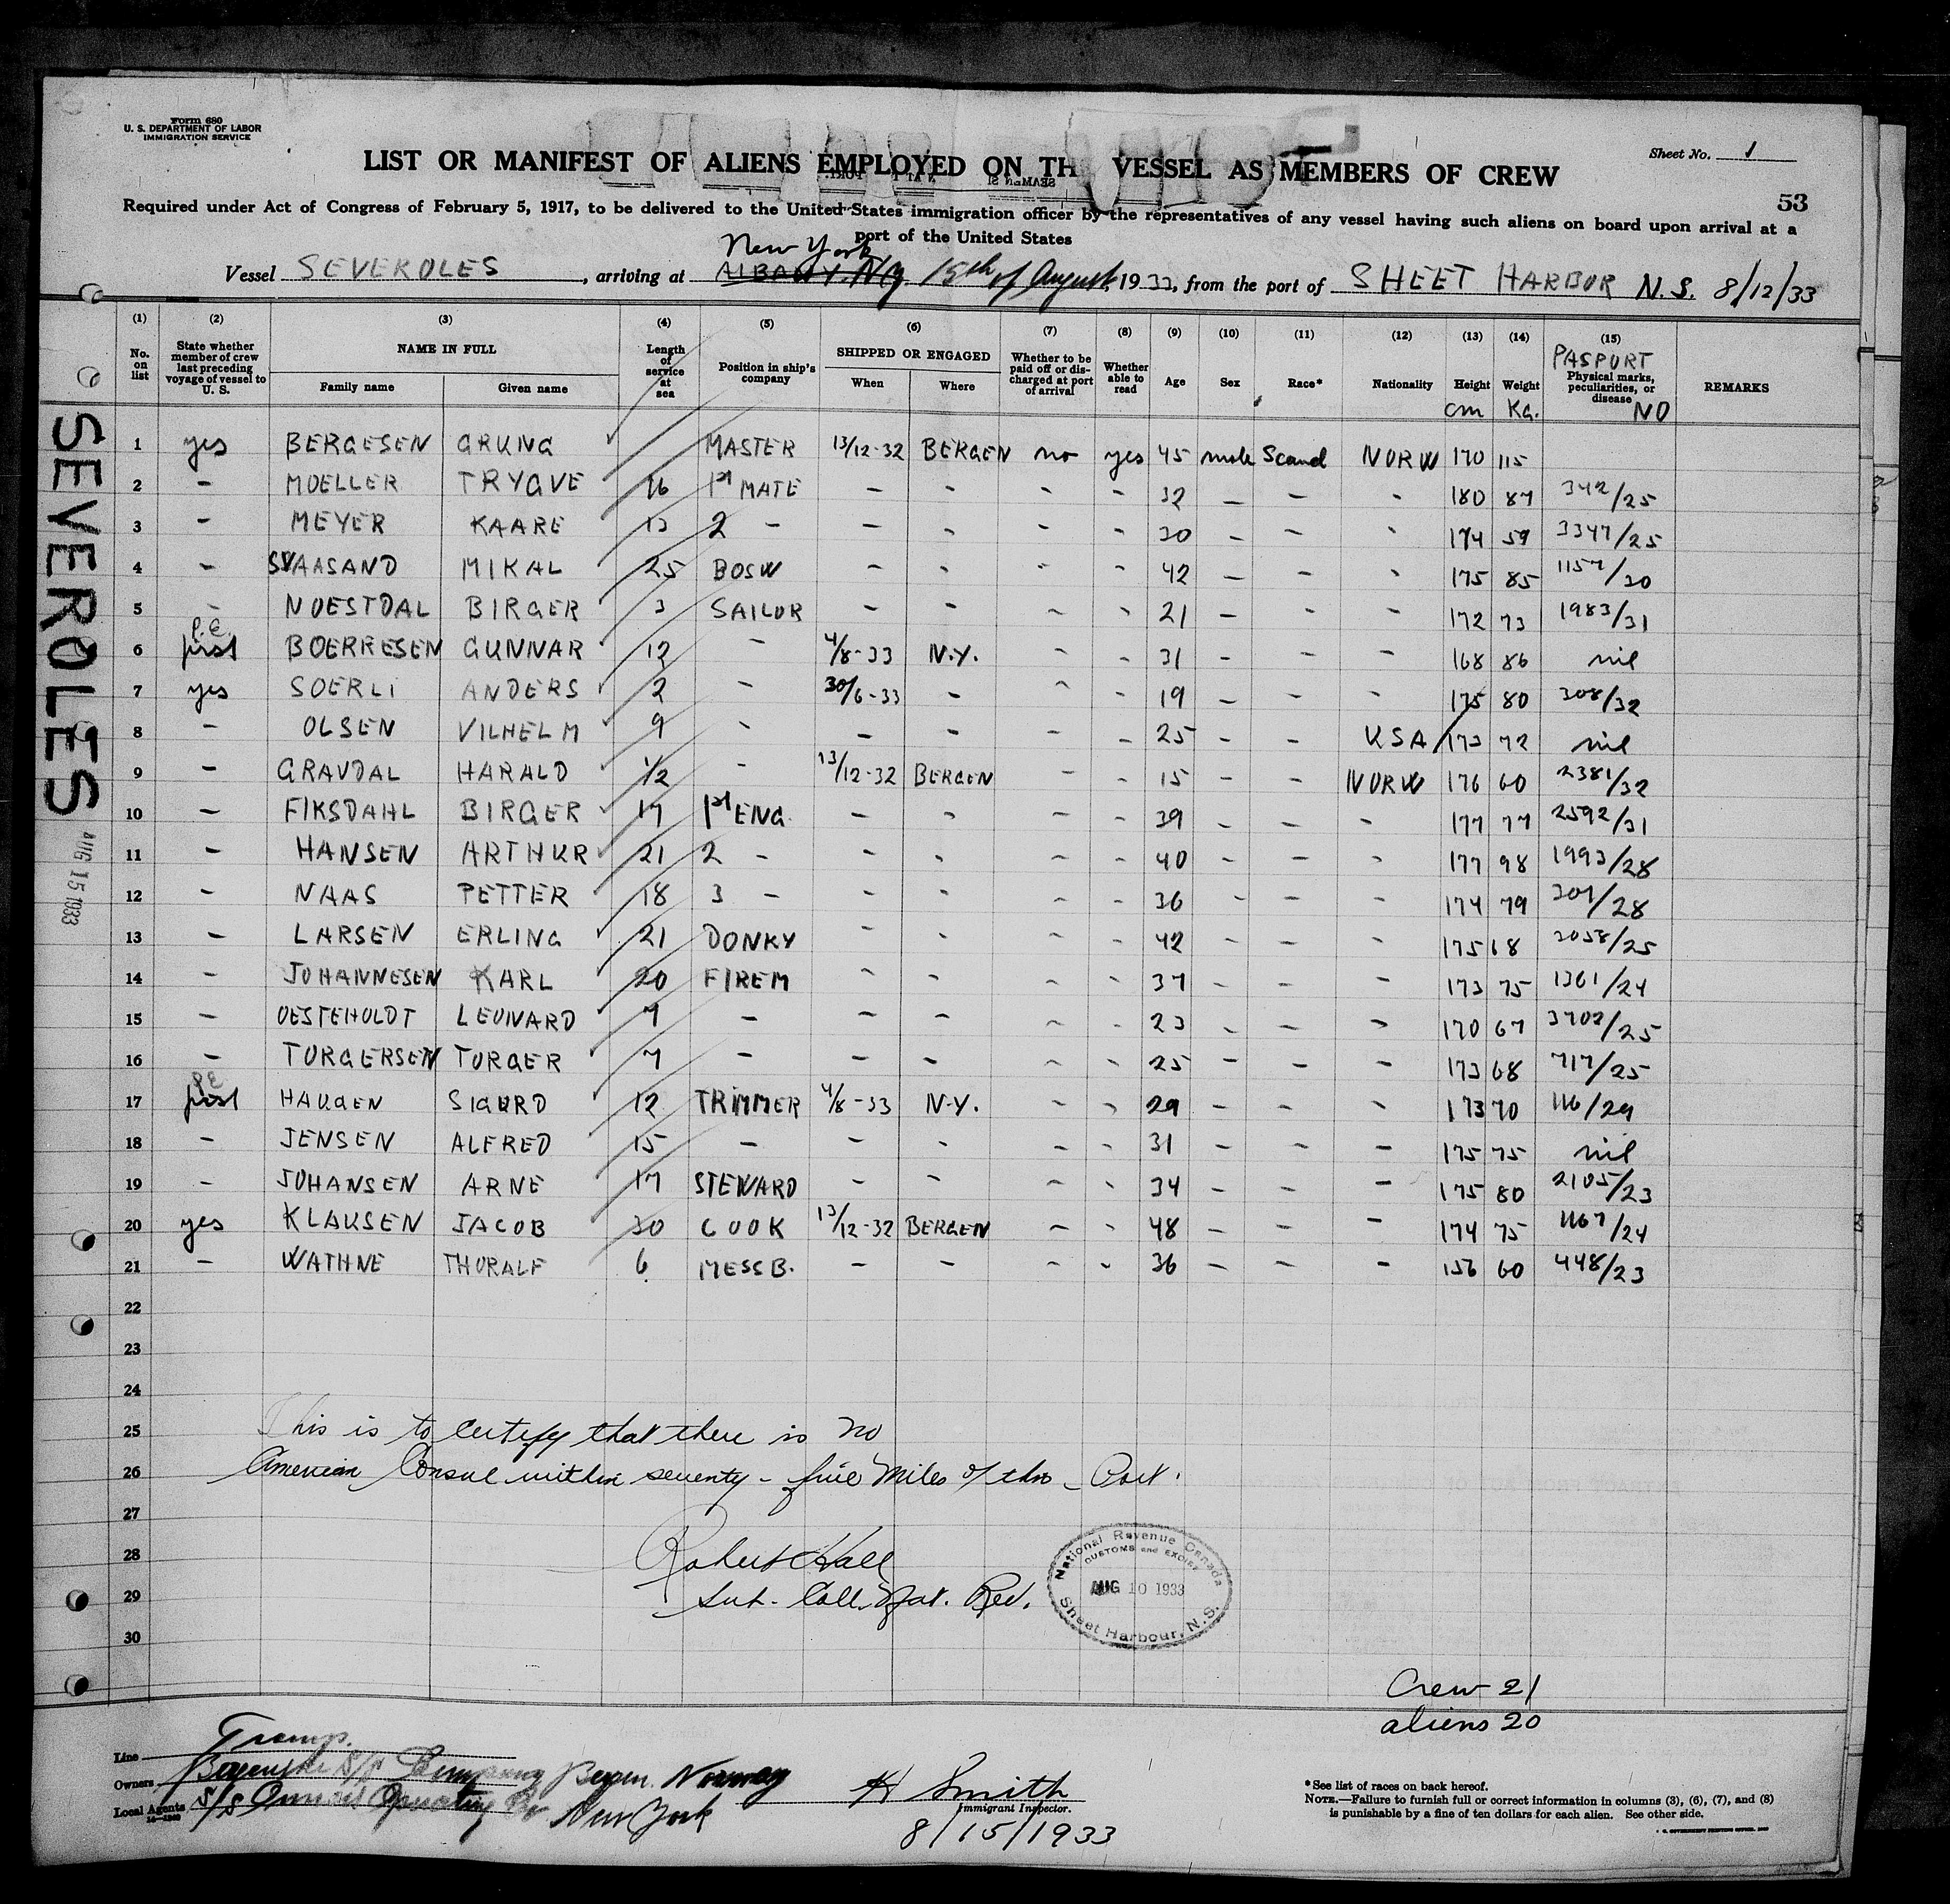 Form 680
U. S. DEPARTMENT OF LABOR
IMMIGRATION SERVICE
Sheet No. 1
LIST OR MANIFEST OF ALIENS EMPLOYED ON TH VESSEL AS MEMBERS OF CREW
53
Required under Act of Congress of February 5, 1917, to be delivered to the United States immigration officer by the representatives of any vessel having such aliens on board upon arrival at a
port of the United States
New York
Vessel SEVEROLES, arriving at ALBANY. N.Y. 15th of August, 1933, from the port of SHEET HARBOR N.S. 8/12/33
(1) (2) (3) (4) (5) (6) (7) (8) (9) (10) (11) (12) (13) (14) (15)
No. on list State whether member of crew last preceding voyage of vessel to U. S. NAME IN FULL Family name Given name Length of service at sea Position in ship's company SHIPPED OR ENGAGED When Where Whether to be paid off or discharged at port of arrival Whether able to read Age Sex Race* Nationality Height cm Weight Kg. PASPORT Physical marks, peculiarities, or disease NO REMARKS
1 yes BERGESEN GRUNG MASTER 13/12-32 BERGEN no yes 45 male Scand NORW 170 115
2 - MOELLER TRYGVE 16 1st MATE - - - - 32 - - - 180 87 342/25
3 - MEYER KAARE 13 2 - - - - - 30 - - - 174 59 3347/25
4 - SVAASAND MIKAL 25 BOSW - - - - 42 - - - 175 85 1157/30
5 - NOESTDAL BIRGER 3 SAILOR - - - - 21 - - - 172 73 1983/31
6 P.E. first BOERRESEN GUNNAR 12 - 4/8-33 N.Y. - - 31 - - - 168 86 nil
7 yes SOERLI ANDERS 2 - 30/6-33 - - - 19 - - - 175 80 308/32
8 - OLSEN VILHELM 9 - - - - - 25 - - USA 173 72 nil
9 - GRAVDAL HARALD 1/2 - 13/12-32 BERGEN - - 15 - - NORW 176 60 2381/32
10 - FIKSDAHL BIRGER 17 1st ENG. - - - - 39 - - - 177 77 2592/31
11 - HANSEN ARTHUR 21 2 - - - - - 40 - - - 177 98 1993/28
12 - NAAS PETTER 18 3 - - - - - 36 - - - 174 79 307/28
13 - LARSEN ERLING 21 DONKY - - - - 42 - - - 175 68 2058/25
14 - JOHANNESEN KARL 20 FIREM - - - - 37 - - - 173 75 1361/24
15 - OESTEHOLDT LEONARD 7 - - - - - 23 - - - 170 67 3702/25
16 - TORGERSEN TORGER 7 - - - - - 25 - - - 173 68 717/25
17 P.E. first HAUGEN SIGURD 12 TRIMMER 4/8-33 N.Y. - - 29 - - - 173 70 116/29
18 - JENSEN ALFRED 15 - - - - - 31 - - - 175 75 nil
19 - JOHANSEN ARNE 17 STEWARD - - - - 34 - - - 175 80 2105/23
20 yes KLAUSEN JACOB 30 COOK 13/12-32 BERGEN - - 48 - - - 174 75 1167/24
21 - WATHNE THORALF 6 MESSB. - - - - 36 - - - 156 60 448/23
22
23
24
25 This is to certify that there is no
26 American Consul within seventy-five Miles of this Port.
27
28 Robert Hall
29 Sub. Coll. Nat. Rev.
30
National Revenue Canada
CUSTOMS and EXCISE
AUG 10 1933
Sheet Harbour, N.S.
SEVEROLES
AUG 15 1933
Crew 21
aliens 20
Line Tramp.
Owners S/S Company Bergen. Norway
Local Agents S/S Operating Co New York
H Smith
Immigrant Inspector.
8/15/1933
*See list of races on back hereof.
NOTE.—Failure to furnish full or correct information in columns (3), (6), (7), and (8)
is punishable by a fine of ten dollars for each alien. See other side.